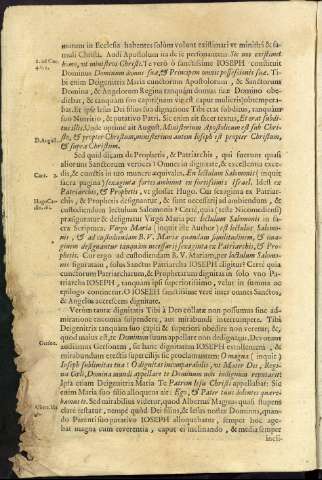 numant in Ecclesia habentes solùm volunt existimari ve ministri & fa-
muli Christi. Audi Apostolum ita de se personantem: Sic nos existimet
homo, vt ministros Christi. Te verò ô sanctissime IOSEPH constituit
Dominus Dominum domus suæ, & Principem omnis possessionis suæ. Ti-
bi enim Deigenitrix Maria cunctorum Apostolorum, & Sanctorum
Domina, & Angelorum Regina tanquam domus tuæ Domino obe-
diebat, & tanquam suo capiti
bat. Et ipse Iesus Dei filius sua dignatione Tibi erat subditus, tanquam
suo Nutritio, & putativo Patri. Sic enim ait sacer textus, Et erat subdi-
tus illis. Unde optime ait August. Ministerium Apostolicum est sub Chri-
sto, & propter Christum, ministerium autem Ioseph est propter Christum,
& supra Christum.
Sed quid dicam de Prophetis, & Patriarchis, qui fuerunt quasi
aliorum Sanctorum vertices? Omnes in dignitate, & excellentia exce-
dis, & cunctis in tuo munere æquivales. En lectulum Salomonis (inquit
sacra pagina) sexaginta fortes ambiunt ex fortissimis Israel. Idest ex
Patriarchis, & Prophetis, vt glossat Hugo. Cur sexaginta ex Patriar-
chis, & Prophetis designantur, & sunt necessarij ad ambiendum, &
custodiendum lectulum Salomonis? Certè, quia (teste Nicomediensi)
præfiguratur & designatur Virgo Maria per lectulum Salomonis in sa-
cra Scriptura. Virgo Maria (inquit iste Author) est lectulus Salomo-
nis, & ad custodiendam B. V. Maria
ginem designantur tanquam necessarij sexaginta ex Patriarchis, & Pro-
phetis. Cur ergo ad custodiendam B. V. Mariam, per lectulum Salomo-
nis figuratam, solus Sanctus Patriarcha IOSEPH eligitur? Certè quia
cunctorum Patriarcharum, & Prophetarum dignitas in solo vno Pa-
triarcha IOSEPH, tanquam ipsi superiori
epilogo continetur. O IOSEPH sanctissime verè inter omnes Sanctos,
& Angelos accerserem dignitate.
Verùm tantæ dignitatis Tibi à Deo collatæ non possumus sine ad-
miratione encomia suspendere, aut mirabundi interrumpere. Tibi
Deigenitrix tanquam suo capiti & superiori obedire non veretur, &,
quod maius est, te Dominum suum appellare non dedignatur. Devotum
audiamus Gersonem, sic hanc dignitatem IOSEPH extollentem, &
mirabundum erectis supercilijs sic proclamantem: O magna (inquit)
Ioseph sublimitas tua: O dignitas incomparabilis, vt Mater Dei, Regi-
na Cœli, Domina mundi appellare te Dominum non indignum reputauerit.
Ipsa etiam Deigenitrix Maria Te Patrem Iesu Christi appellabat: Sic
enim Maria suo filio alloquens ait: Ego, & Pater tuus dolentes quære-
bamus te. Sed mirabilius videtur, quod Albertus Magnus quasi stupens
clarè testatur, nempè quòd Dei filius, & Iesus noster Dominus, quan-
do Parenti suo putativo IOSEPH alloquebatur, semper hoc age-
bat magna cum reverentia, caput ei inclinando, & media semper
incli-
D. August.
Cant. 3.
Gerson.